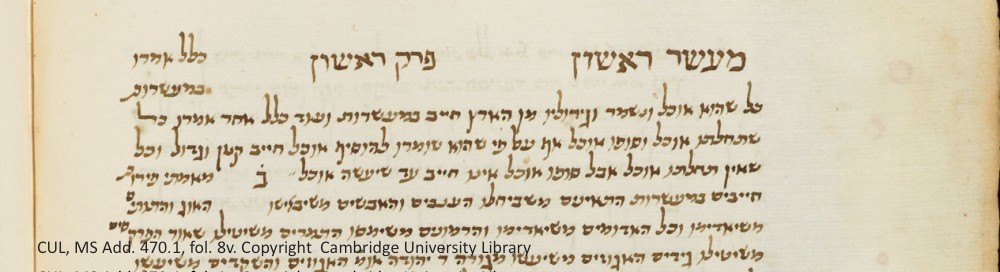 מעשר ראשון פרק ראשון כלל אמרו
במעשרות
כל שהוא אוכל ונשמר וגידוליו מן הארץ חייב במעשרות ועוד כלל אחר אמרו כל
שתחלתו אוכל וסופו אוכל אף על פי שהוא שומרו להוסיף אוכל חייב קטן וגדול וכל
שאין תחלתו אוכל אבל סופו אוכל אינו חייב עד שיעשה אוכל ב מאמתי פירו
חייבים במעשרות התאינים משביחלו הענבים והאבשים משיבאישו האוג והתותי
משיאדימו וכל האדומים משיאדימו והרמונים משימסו התמרים משיטילו שאור
משיטילו גידים האגוזים משיעשו מגורה ר יהודה אומ האגוזים והשקדים משיעשו
CUL, MS Add. 470.1, fol. 8v. Copyright Cambridge University Library